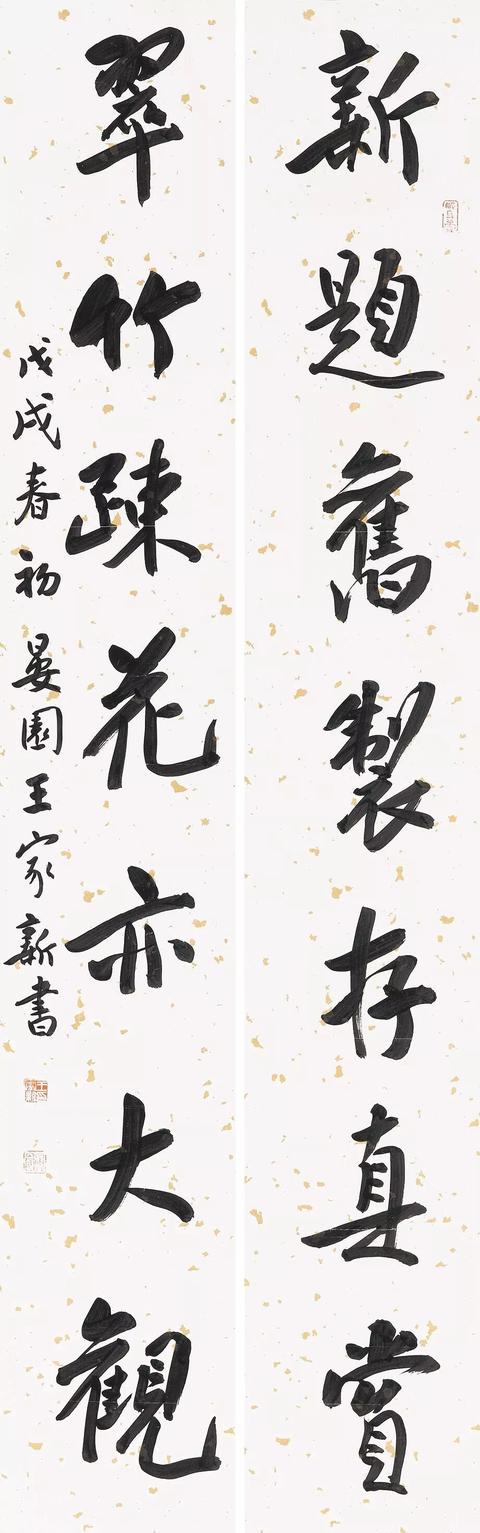 新題舊製存真賞
翠竹疎花亦大觀
戊戌春初晏園王家新書